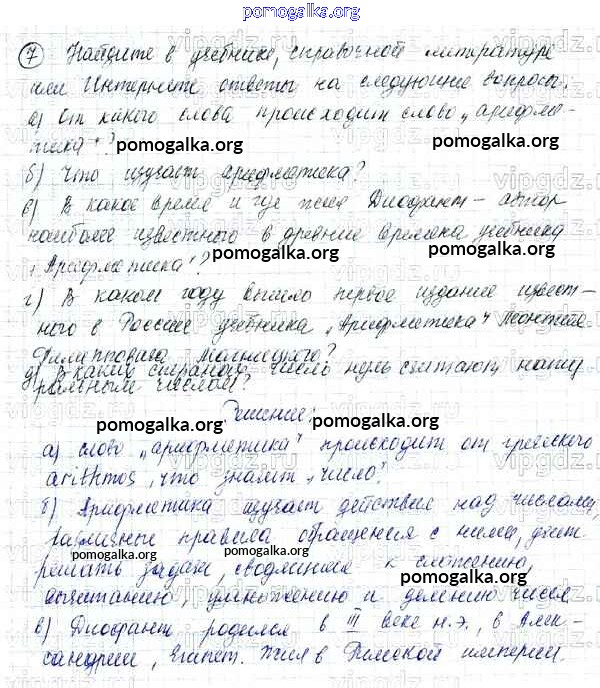 pomogalka.org
7 Найдите в учебнике, справочной литературе
или Интернете ответы на следующие вопросы.
а) От какого слова происходит слово „арифме-
тика"?
pomogalka.org pomogalka.org
б) Что изучает арифметика?
в) В какое время и где жил Диофант – автор
pomogalka.org pomogalka.org
наиболее известного в древние времена учебника
„Арифметика"?
pomogalka.org pomogalka.org
г) В каком году вышло первое издание извест-
ного в России учебника „Арифметика" Леонтия
Филипповича Магницкого?
д) В каких странах число нуль считают нату
ральным числом?
Решение:
pomogalka.org pomogalka.org
а) слово „арифметика" происходит от греческого
arithmos, что значит „число".
pomogalka.org
б) Арифметика изучает действия над числами,
различные правила обращения с ними, учит
pomogalka.org pomogalka.org
решать задачи, сводящиеся к сложению,
pomogalka.org
вычитанию, умножению и делению чисел
в) Диофант родился в III веке н.э., в Алек-
pomogalka.org pomogalka.org
сандрии, Египет. Жил в Римской империи.